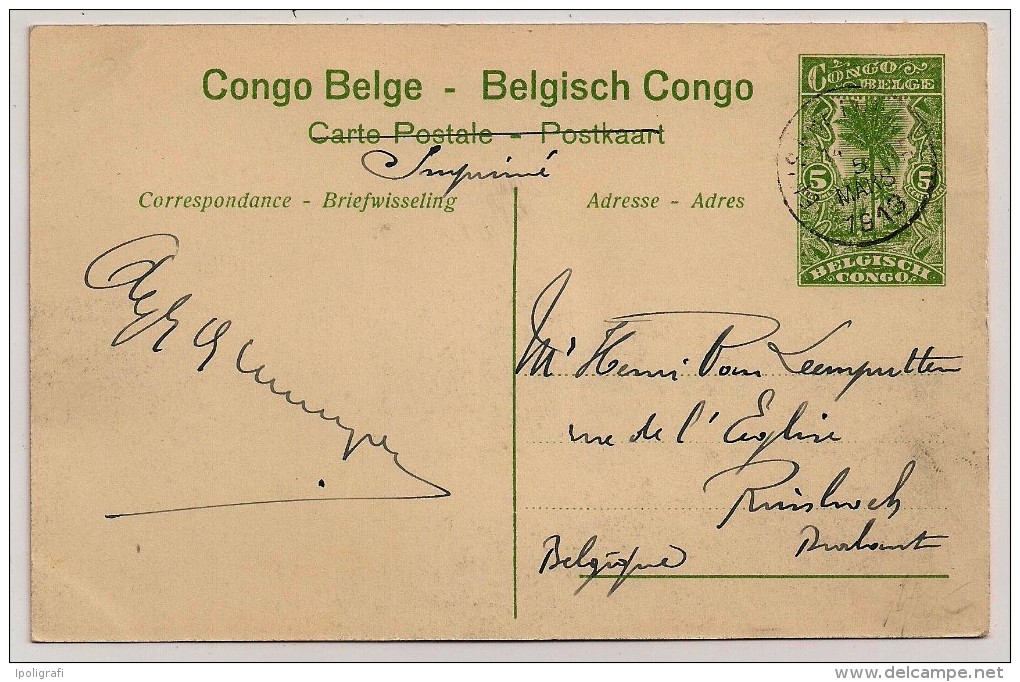 Congo Belge - Belgisch Congo
Carte Postale - Postkaart
Imprimé
Correspondance - Briefwisseling
Adresse - Adres
CONGO BELGE
5 5
BELGISCH CONGO
5
MARS
1913
Mr Henri Van Leemputten
rue de l'Eglise
Belgique
Brabant
Ipoligrafi
www.delcampe.net